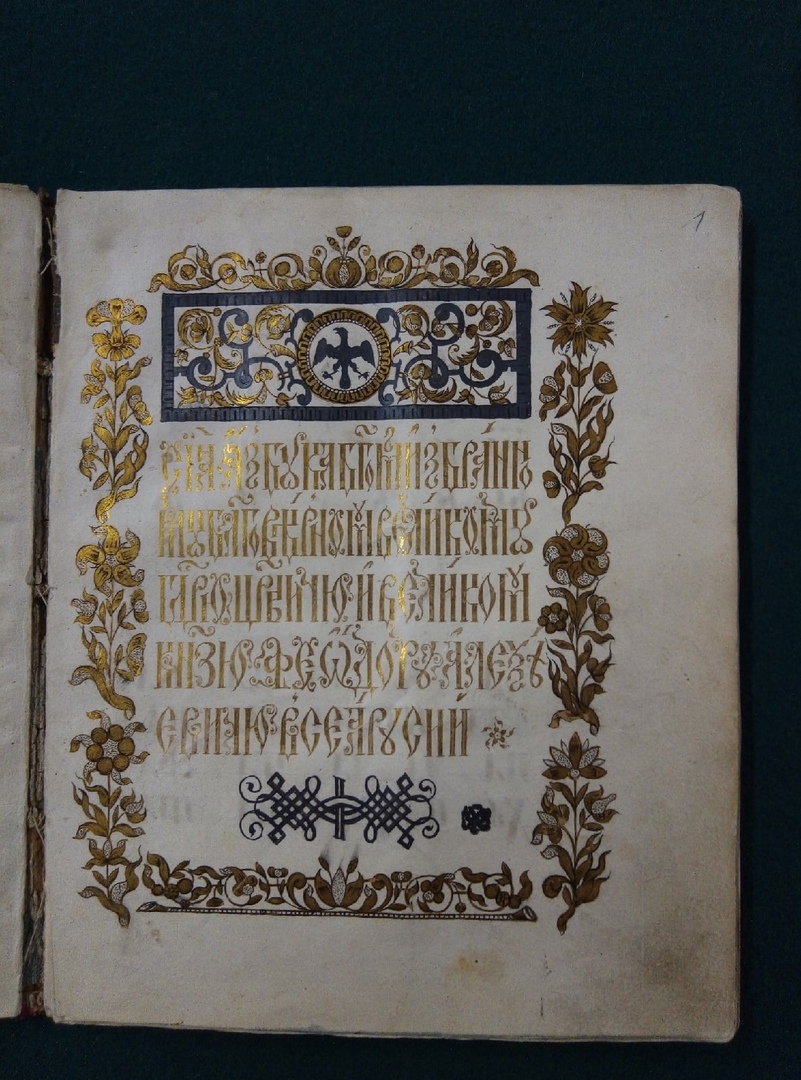 1
сїѧ азбука бг҃ом̾ и҆збранн
омꙋ бл҃говѣрномꙋ вели́комꙋ
гдⷭ҇рю цр҃евичю и҆ вели́комꙋ
кнѧ҃зю ѳео́дорꙋ а҆леѯѣ́
евичю всеѧ̀ рꙋси́и